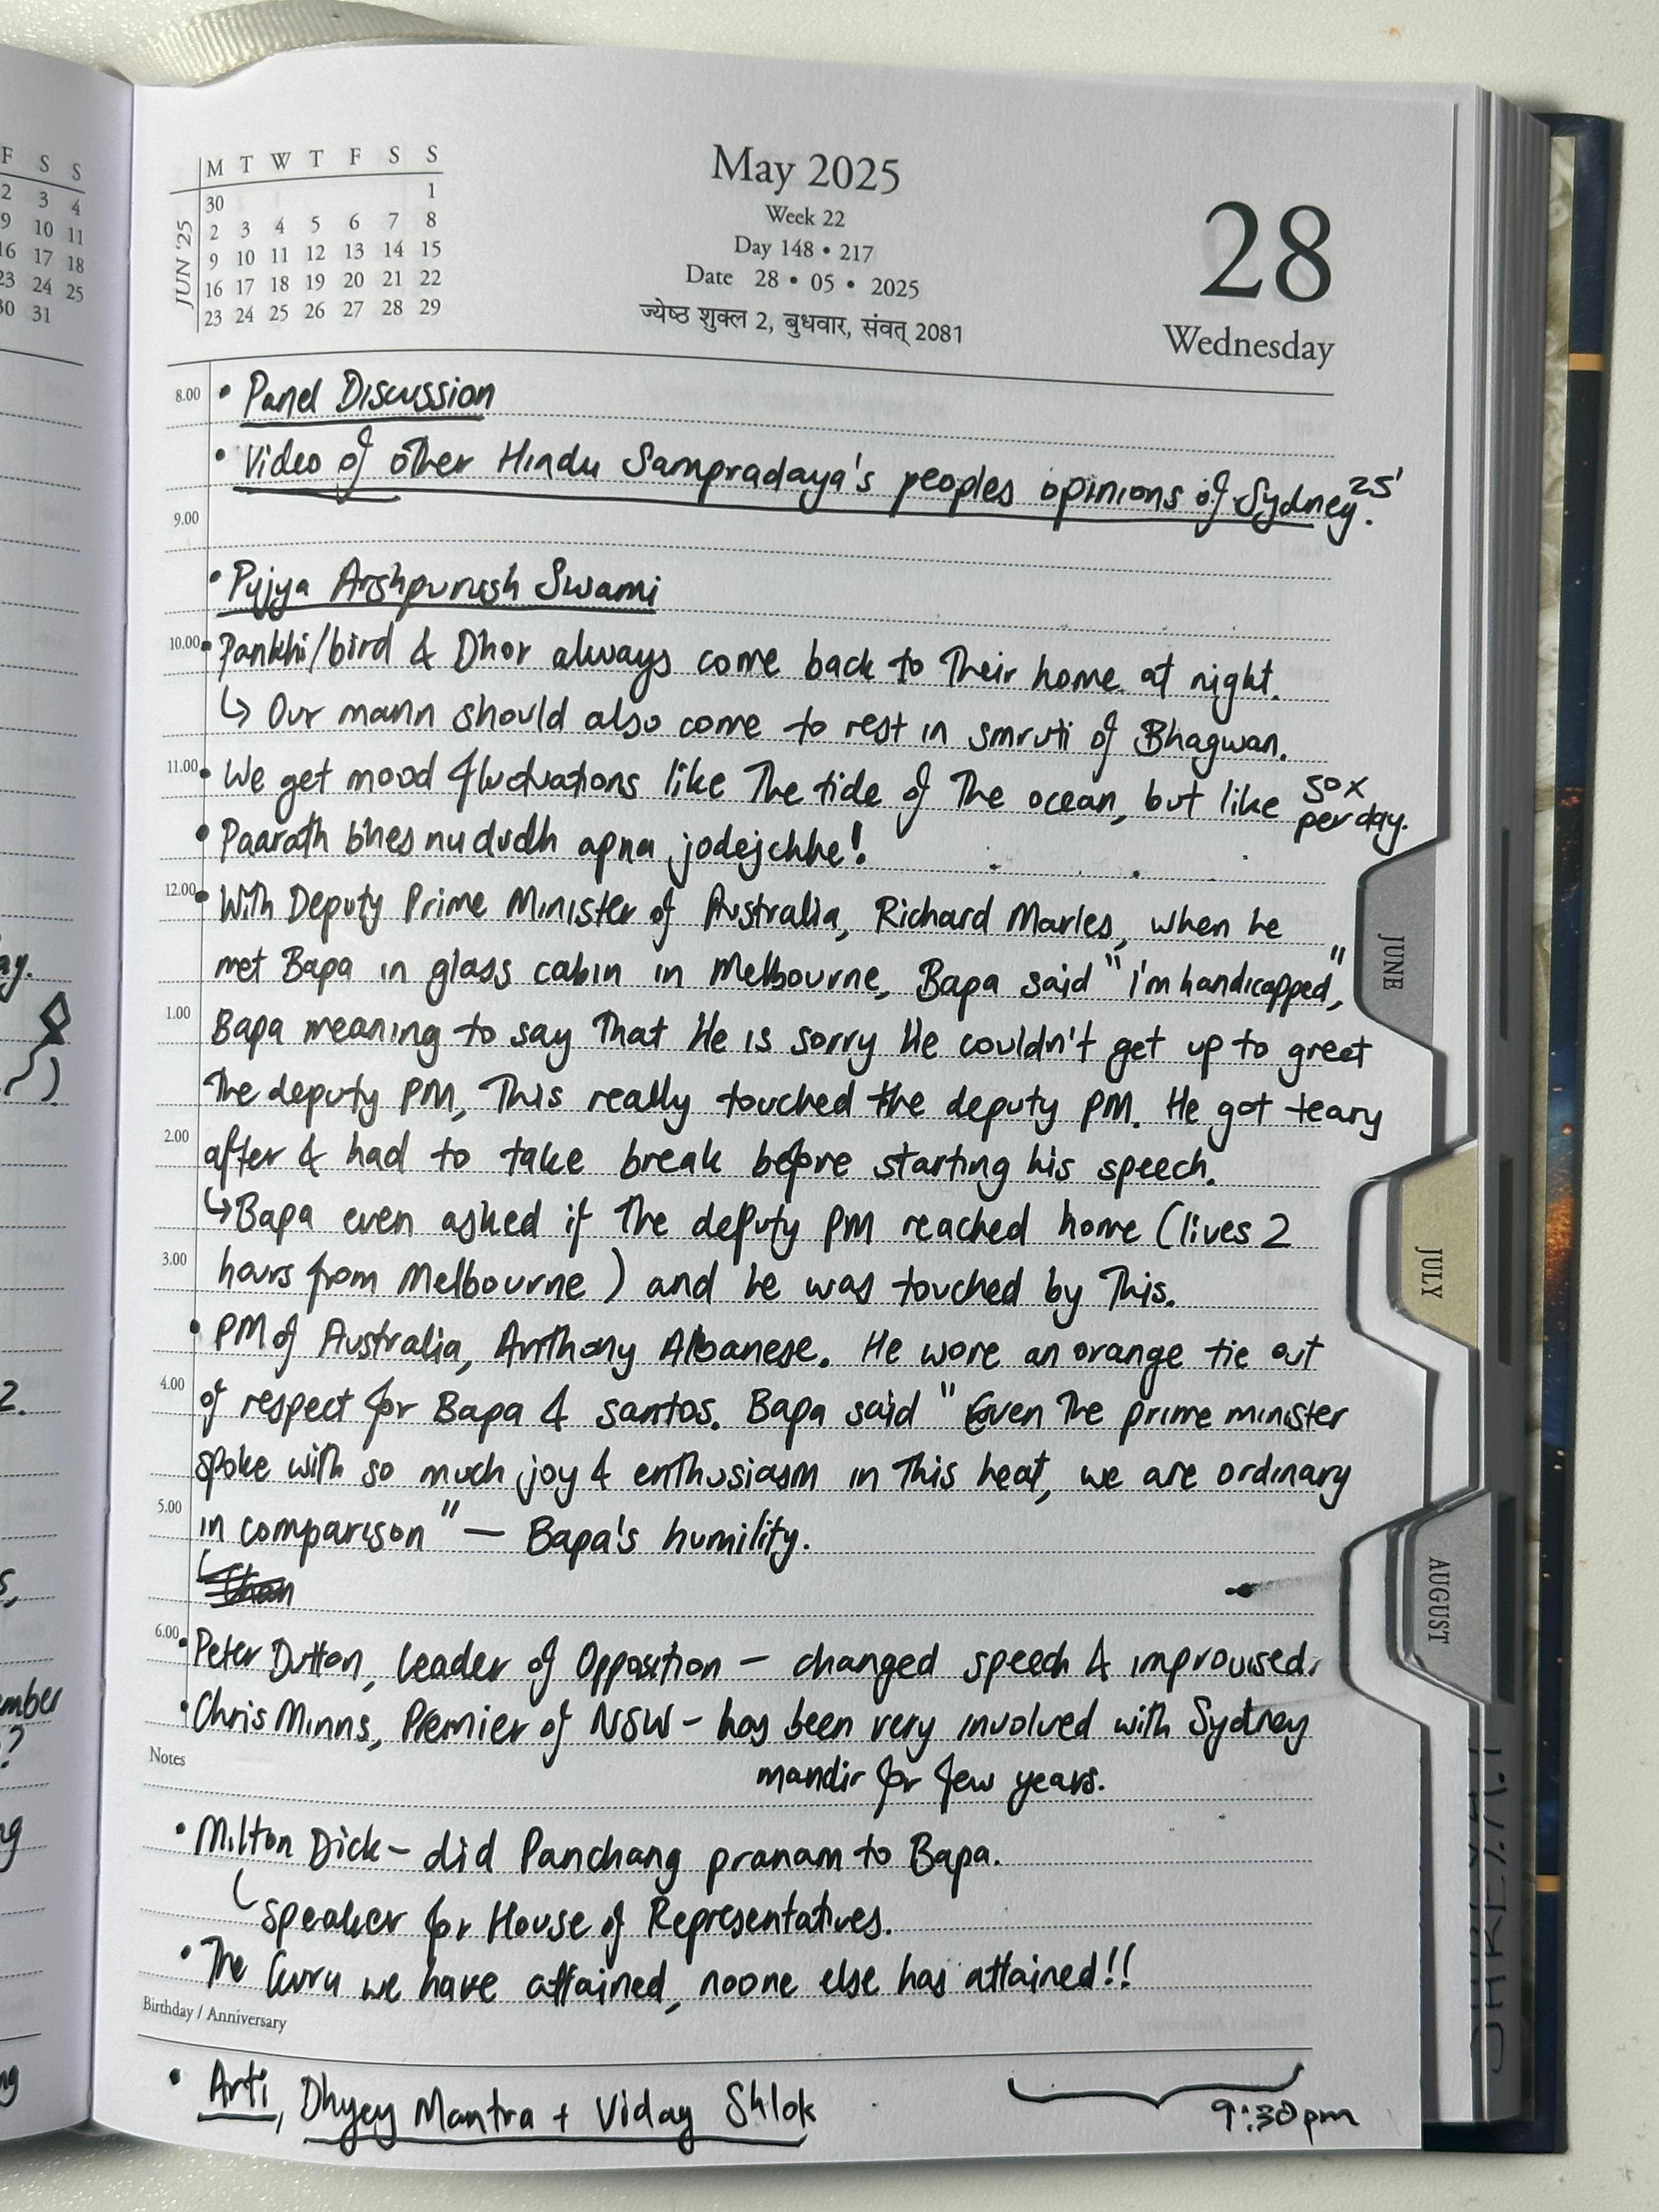 F S S
2 3 4
9 10 11
16 17 18
23 24 25
30 31
JUN '25
M T W T F S S
30 1
2 3 4 5 6 7 8
9 10 11 12 13 14 15
16 17 18 19 20 21 22
23 24 25 26 27 28 29
May 2025
Week 22
Day 148 • 217
Date 28 • 05 • 2025
ज्येष्ठ शुक्ल 2, बुधवार, संवत् 2081
28
Wednesday
8.00 • Panel Discussion
• Video of other Hindu Sampradaya's peoples opinions of Sydney 25'.
9.00
• Pujya Arshpurush Swami
10.00 • Pankhi/bird & Dhor always come back to their home at night.
↳ Our mann should also come to rest in smruti of Bhagwan.
11.00 • We get mood fluctuations like the tide of the ocean, but like 50x per day.
• Paarath bhes nu dudh apna jodejchhe!
12.00 • With Deputy Prime Minister of Australia, Richard Marles, when he
met Bapa in glass cabin in Melbourne, Bapa said "i'm handicapped,"
1.00 Bapa meaning to say that He is sorry He couldn't get up to greet
the deputy PM, This really touched the deputy PM. He got teary
2.00 after & had to take break before starting his speech.
↳ Bapa even asked if the deputy PM reached home (lives 2
3.00 hours from Melbourne) and he was touched by this.
• PM of Australia, Anthony Albanese. He wore an orange tie out
4.00 of respect for Bapa & santos. Bapa said "Even the prime minister
spoke with so much joy & enthusiasm in this heat, we are ordinary
5.00 in comparison" — Bapa's humility.
6.00 • Peter Dutton, leader of Opposition — changed speech & improvised.
• Chris Minns, Premier of NSW - has been very involved with Sydney
Notes
mandir for few years.
• Milton Dick - did Panchang pranam to Bapa.
↳ Speaker for House of Representatives.
• The Guru we have attained, noone else has attained!!
Birthday / Anniversary
• Arti, Dhyey Mantra + Viday Shlok
9:30pm
JUNE
JULY
AUGUST